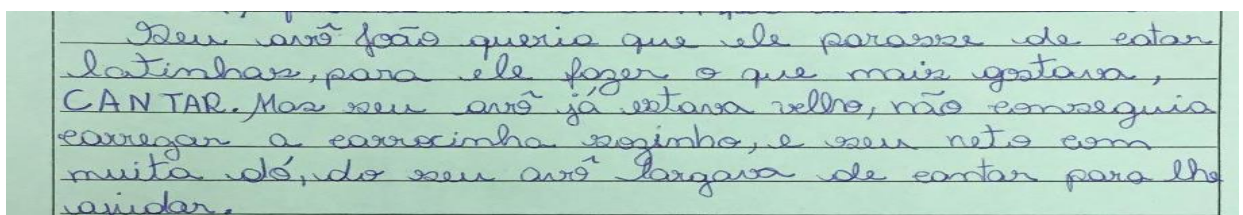 Seu avô João queria que ele parasse de catar
latinhas, para ele fazer o que mais gostava,
CANTAR. Mas seu avô já estava velho, não conseguia
carregar a carrocinha sozinho, e seu neto com
muita dó, do seu avô largava de cantar para lhe
ajudar.